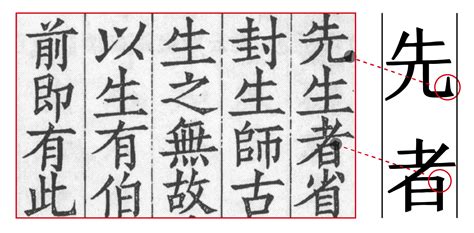 先生者省
封生師古
生之無故
以生有伯
前即有此
先者